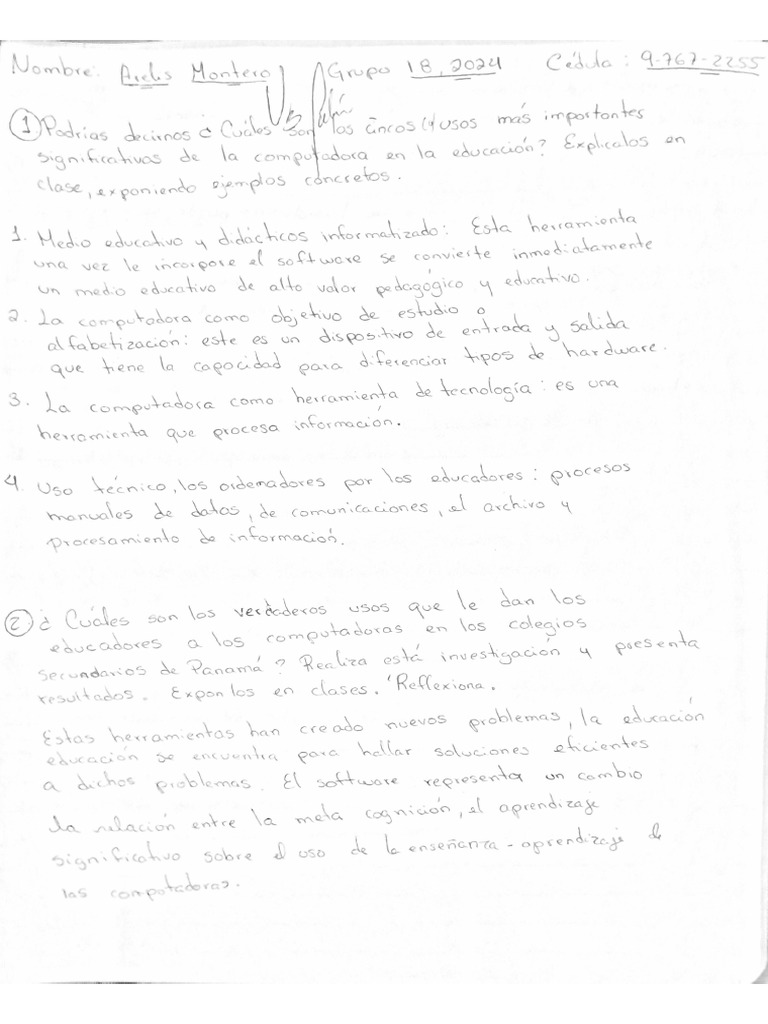 Nombre: Arelis Montero Grupo 18, 2024 Cédula: 9-767-2255
① Podrías decirnos ¿ Cuáles son los cincos (4) usos más importantes
significativas de la computadora en la educación? Explícalos en
clase, exponiendo ejemplos concretos.
1. Medio educativo y didácticos informatizado: Esta herramienta
una vez le incorpore el software se convierte inmediatamente
un medio educativo de alto valor pedagógico y educativo.
2. La computadora como objetivo de estudio o
alfabetización: este es un dispositivo de entrada y salida
que tiene la capacidad para diferenciar tipos de hardware.
3. La computadora como herramienta de tecnología: es una
herramienta que procesa información.
4. Uso técnico, los ordenadores por los educadores: procesos
manuales de datos, de comunicaciones, el archivo y
procesamiento de información.
② ¿ Cuáles son los verdaderos usos que le dan los
educadores a los computadoras en los colegios
secundarios de Panamá? Realiza está investigación y presenta
resultados. Exponlos en clases. 'Reflexiona.
Estas herramientas han creado nuevos problemas, la educación
educación se encuentra para hallar soluciones eficientes
a dichos problemas. El software representa un cambio
la relación entre la meta cognición, el aprendizaje
significativo sobre el uso de la enseñanza - aprendizaje de
las computadoras.